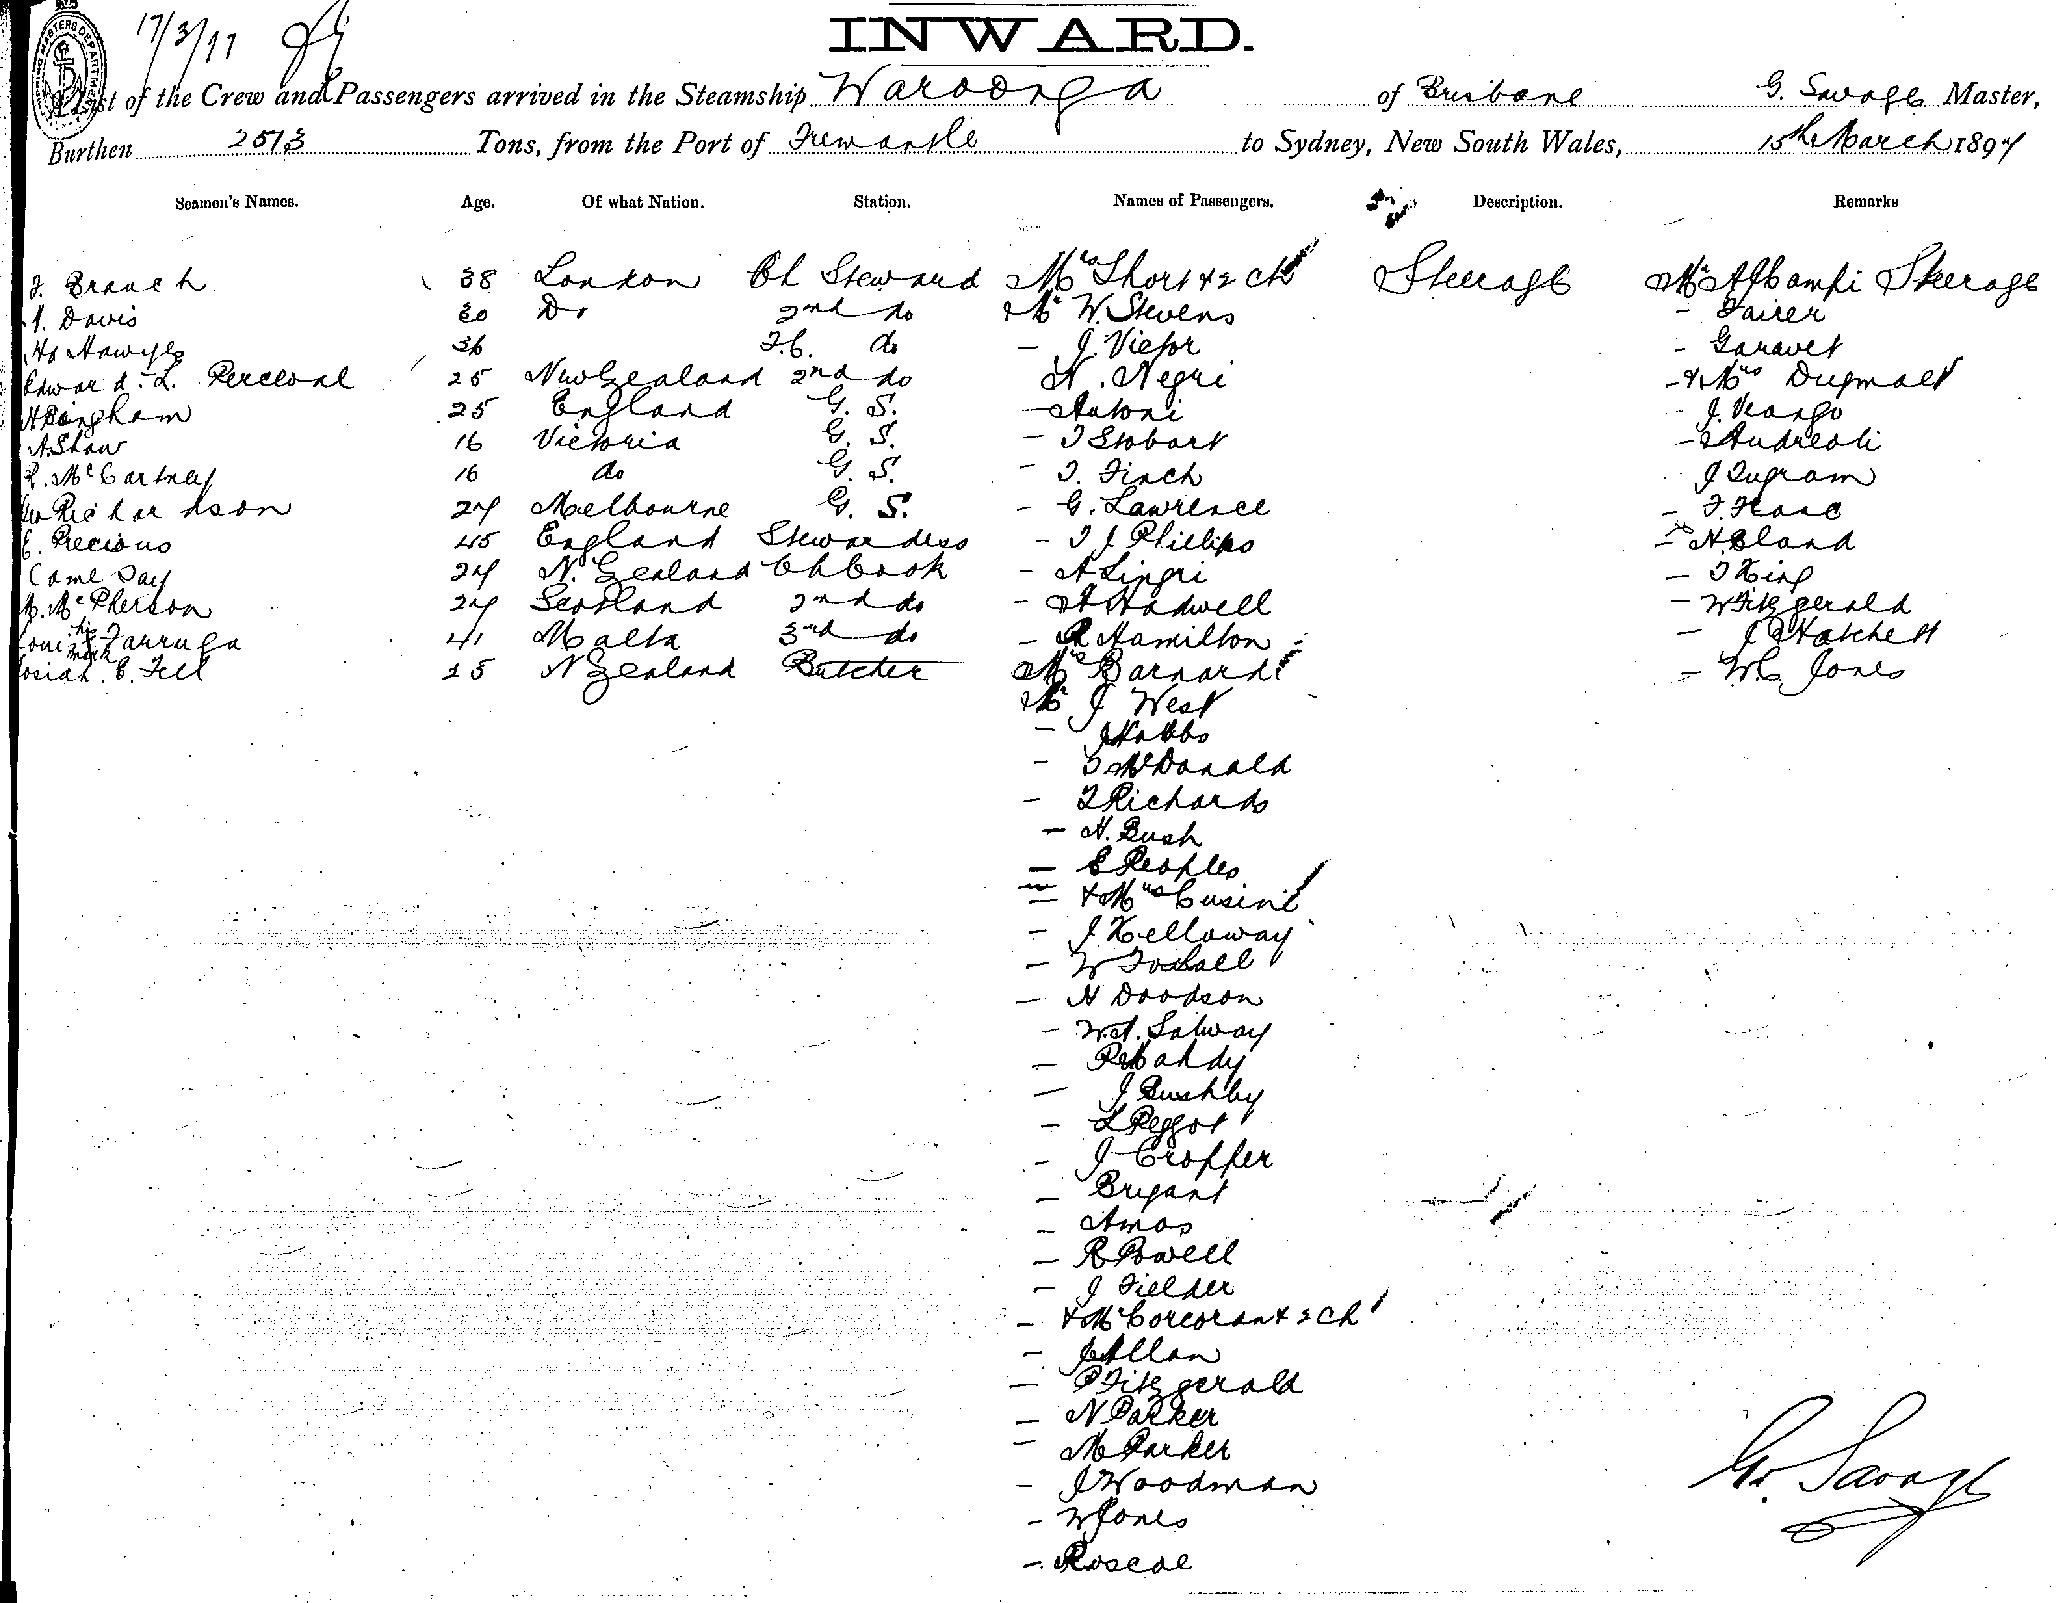 17/3/97
INWARD.
List of the Crew and Passengers arrived in the Steamship Waroonga of Brisbane G. Savage Master,
Burthen 2513 Tons, from the Port of Fremantle to Sydney, New South Wales, 15th March 1897
Seamen's Names. Age. Of what Nation. Station. Names of Passengers. Description. Remarks
J. Branch 38 London Ch Steward Mrs Short & 2 ch Steerage Mr Steerage
Davis 30 Do 2nd do Mr W. Stevens - Fairer
36 F.C. do - J. Victor - Garavet
Edward. L. Percival 25 New Zealand 2nd do N. Negri - & Mrs
H Bingham 25 England G. S. - Antoni J.
A Shaw 16 Victoria G. S. - T Stobart - Andreoli
R. McCartney 16 do G. S. - T. Finch J Ingram
Geo Richardson 27 Melbourne G. S. - G. Lawrence - F.
E. Precious 45 England Stewardess - T J Phillips - H Bland
Came Day 27 N. Zealand Ch Cook - A Lingri - T King
M. McPherson 27 Scotland 2nd do - A Hadwell - W Fitzgerald
Louis his mark Farruga 41 Malta 3rd do - R Hamilton - J Hatchett
Josiah. C. Fell 25 N Zealand Butcher Mrs Barnard - W C. Jones
Mr J West
- J Hobbs
- T McDonald
- T Richards
- H. Bush
- E Peoples
- & Mrs Cusini
- J Kelloway
- W
- H Doodson
- W. Salway
- R
- J Bushby
- L Peggot
- J Cropper
- Bryant
- Amos
- R Powell
- J Fielder
- & Mrs Corcoran & 2 ch
- J Allan
- P Fitzgerald
- N Parker
- M Parker
- J Woodman
- W Jones
- Roscoe
Geo. Savage